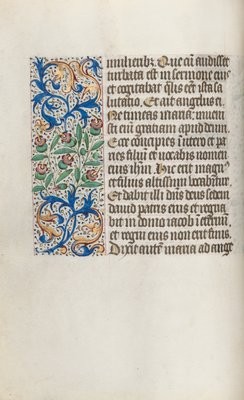 mulierib3. Que cu᷑ audisset
turbata est in sermone eius
et cogitabat qualis eēt ista sa
lutatio. Et ait angelus ei
Ne timeas maria: inueni
sti eni᷑ gratiam apud deum.
Ecce concipies i᷑ utero et pa
ries filiu᷑ et uocabis nomen
eius ih̄m. Hic erit magn9
et filius altissimi uocabitur.
Et dabit illi dn̄s deus sedem
dauid patris eius et regna
bit in domo iacob i᷑ eternu᷑.
et regni eius non erit finis.
Dixit aute᷑ maria ad ange